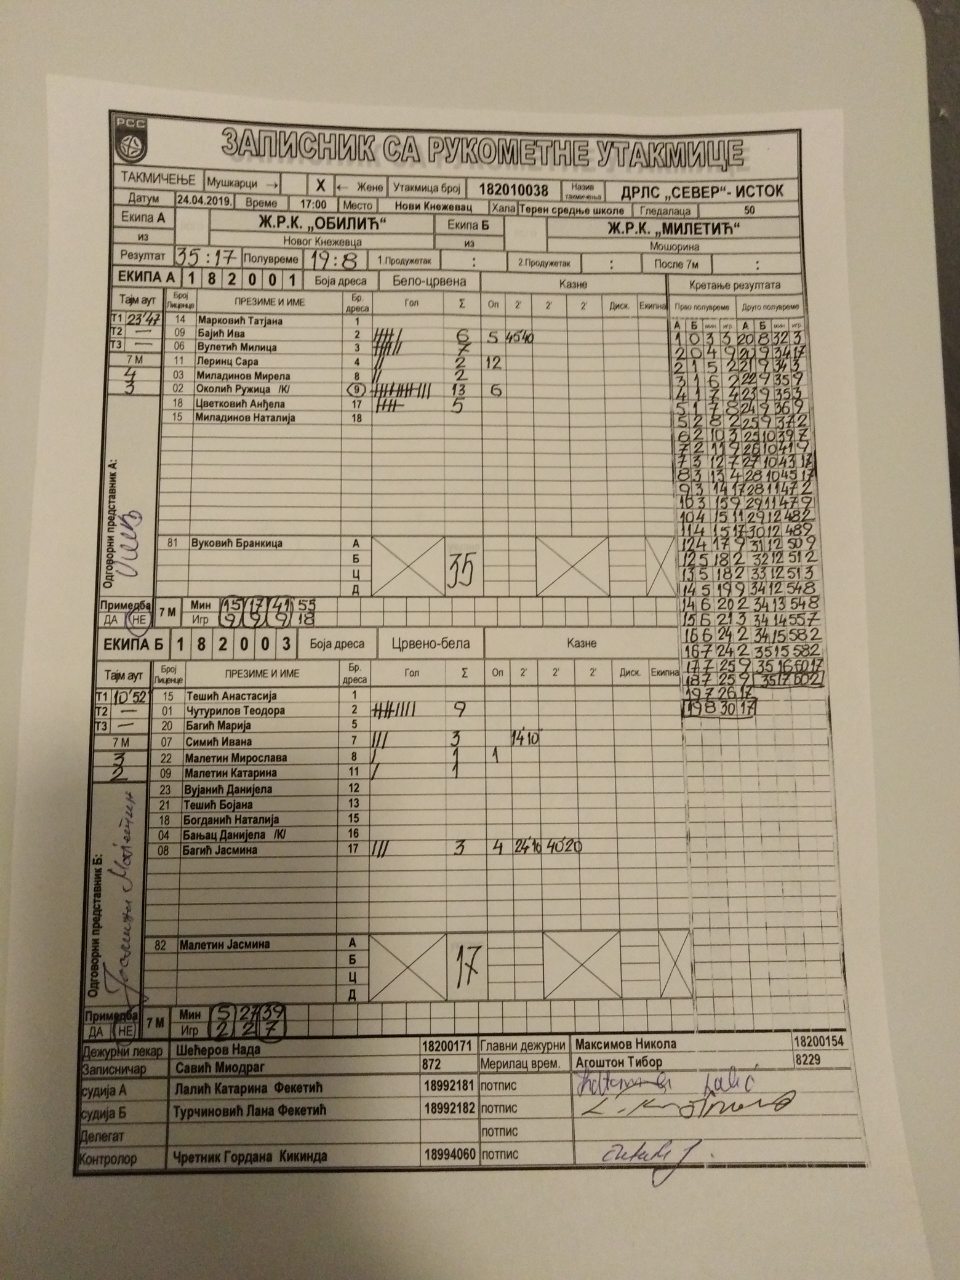 РСС
ЗАПИСНИК СА РУКОМЕТНЕ УТАКМИЦЕ
ТАКМИЧЕЊЕ Мушкарци → X ← Жене Утакмица број 182010038 Назив такмичења ДРЛС „СЕВЕР“- ИСТОК
Датум 24.04.2019. Време 17:00 Место Нови Кнежевац Хала Терен средње школе Гледалаца 50
Екипа А Ж.Р.К. „ОБИЛИЋ“ Екипа Б Ж.Р.К. „МИЛЕТИЋ“
из Новог Кнежевца из Мошорина
Резултат 35:17 Полувреме 19:8 1.Продужетак : 2.Продужетак : После 7м :
ЕКИПА А 1 8 2 0 0 1 Боја дреса Бело-црвена Казне Кретање резултата
Тајм аут Број Лиценце ПРЕЗИМЕ И ИМЕ Бр. дреса Гол Σ Оп 2' 2' 2' Диск. Екипна Прво полувреме Друго полувреме
А Б мин игр А Б мин игр
Т1 23'47 14 Марковић Татјана 1
Т2 — 09 Бајић Ива 2 6 5 45'40
Т3 — 06 Вулетић Милица 3 7
7 М 11 Леринц Сара 4 2 12
4 03 Миладинов Мирела 8 2
3 02 Околић Ружица /К/ 9 13 6
18 Цветковић Анђела 17 5
15 Миладинов Наталија 18
1 0 3 3 20 8 32 3
2 0 4 9 20 9 34 17
2 1 5 2 21 9 34 3
3 1 6 2 22 9 35 9
4 1 7 4 23 9 35 3
5 1 7 8 24 9 36 9
5 2 8 2 25 9 37 2
6 2 10 3 25 10 39 7
7 2 11 9 26 10 41 9
7 3 12 7 27 10 43 17
8 3 13 4 28 10 45 17
9 3 14 17 28 11 47 2
10 3 15 9 29 11 47 9
10 4 15 11 29 12 48 2
11 4 15 17 30 12 48 9
12 4 17 9 31 12 50 9
12 5 18 2 32 12 51 2
13 5 18 2 33 12 51 3
14 5 19 9 34 12 54 8
14 6 20 2 34 13 54 8
15 6 21 3 34 14 55 7
16 6 24 2 34 15 58 2
16 7 24 2 35 15 58 2
17 7 25 9 35 16 60 17
18 7 25 9 35 17 60 2
19 7 26 17
19 8 30 17
Одговорни представник А:
81 Вуковић Бранкица А 35
Б
Ц
Д
Примедба 7 М Мин 15 17 41 55
ДА НЕ Игр 9 9 9 18
ЕКИПА Б 1 8 2 0 0 3 Боја дреса Црвено-бела Казне
Тајм аут Број Лиценце ПРЕЗИМЕ И ИМЕ Бр. дреса Гол Σ Оп 2' 2' 2' Диск. Екипна
Т1 10'52 15 Тешић Анастасија 1
Т2 — 01 Чутурилов Теодора 2 9
Т3 — 20 Багић Марија 5
7 М 07 Симић Ивана 7 3 14'10
3 22 Малетин Мирослава 8 1 1
2 09 Малетин Катарина 11 1
23 Вујанић Данијела 12
21 Тешић Бојана 13
18 Богданић Наталија 15
04 Бањац Данијела /К/ 16
08 Багић Јасмина 17 3 4 24'16 40'20
Одговорни представник Б:
82 Малетин Јасмина А 17
Б
Ц
Д
Примедба 7 М Мин 5 27 39
ДА НЕ Игр 2 2 7
Дежурни лекар Шећеров Нада 18200171 Главни дежурни Максимов Никола 18200154
Записничар Савић Миодраг 872 Мерилац врем. Агоштон Тибор 8229
судија А Лалић Катарина Фекетић 18992181 потпис
судија Б Турчиновић Лана Фекетић 18992182 потпис
Делегат потпис
Контролор Чретник Гордана Кикинда 18994060 потпис